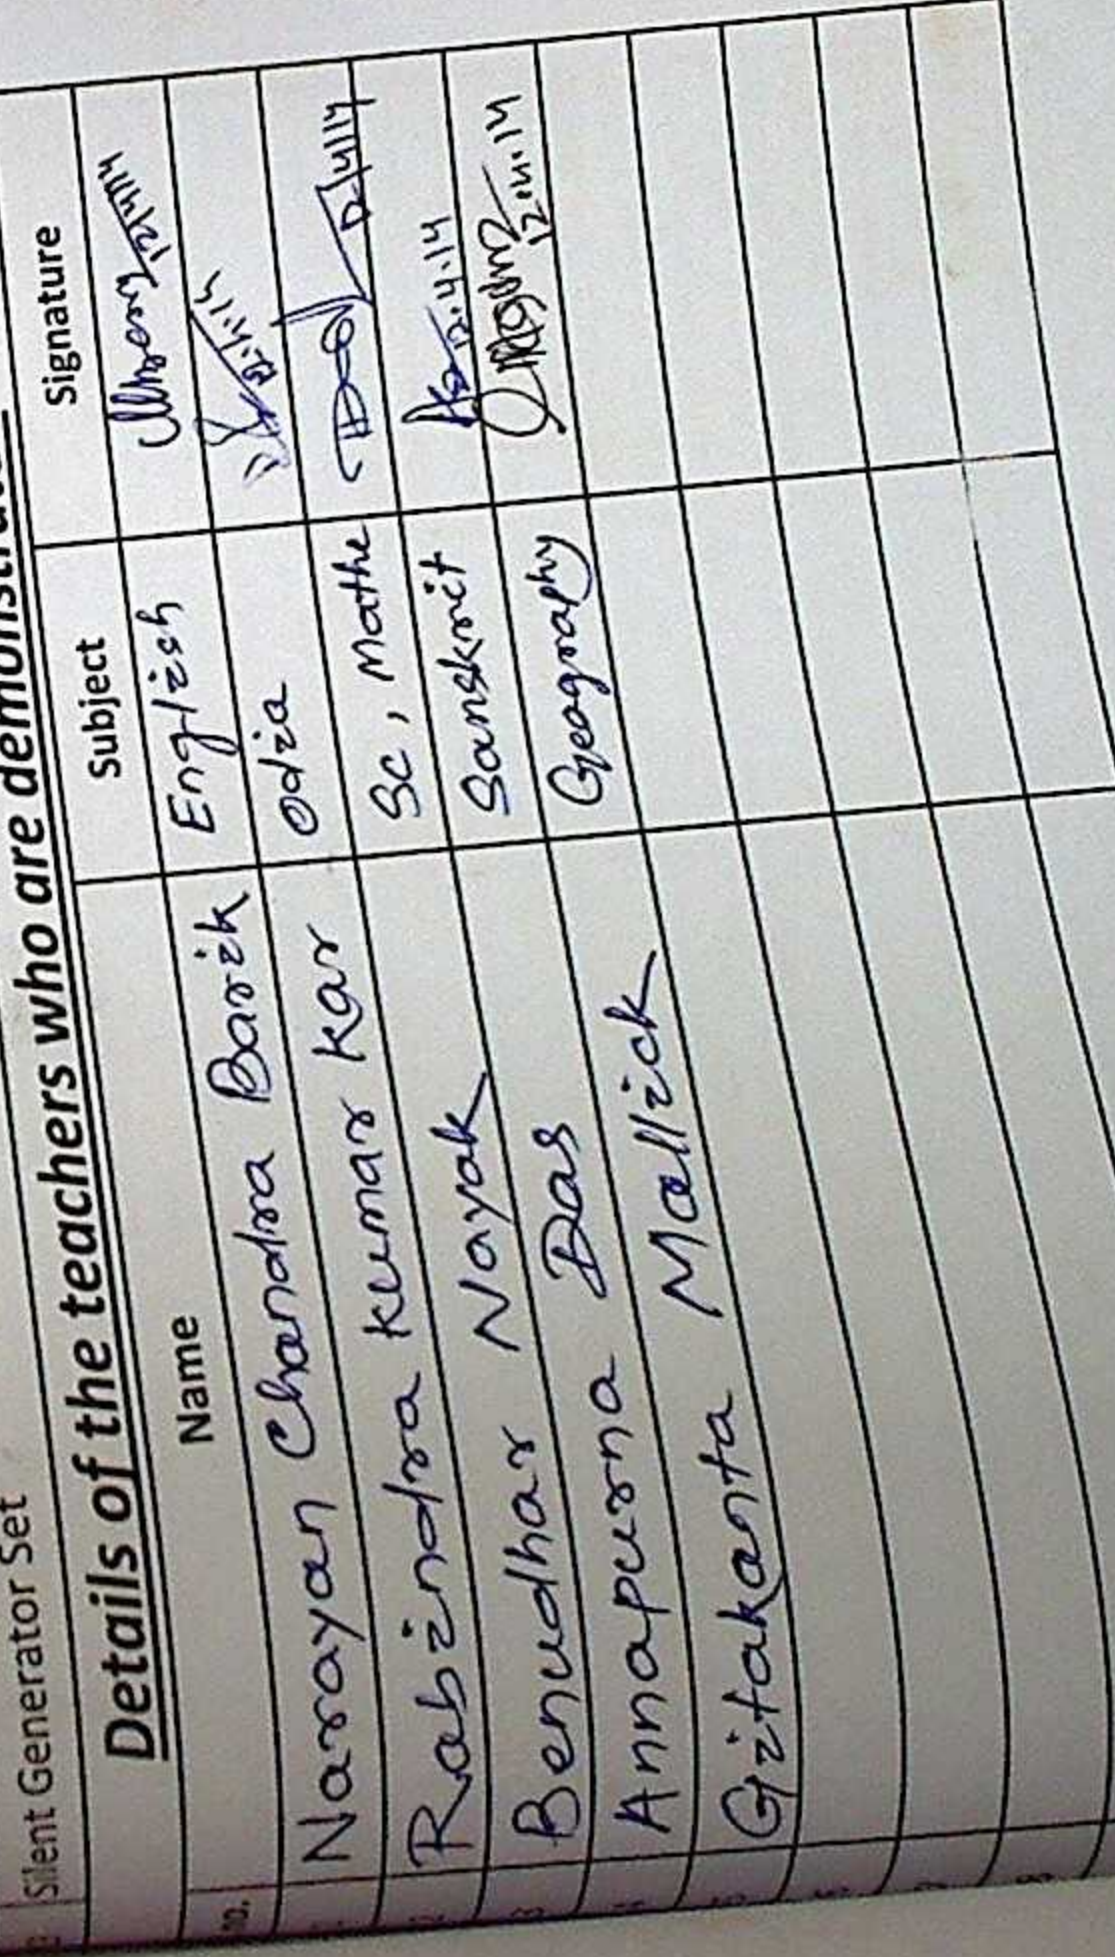 Silent Generator Set
Details of the teachers who are
no. Name Subject Signature
1 Narayan Chandra Barik English 12/4/14
2 Rabindra Kumar Kar Odia 12.4.14
3 Benudhar Nayak Sc, Mathe 12/4/14
4 Annapurna Das Sanskrit 12.4.14
5 Gitakanta Mallick Geography 12.4.14
6
7
8